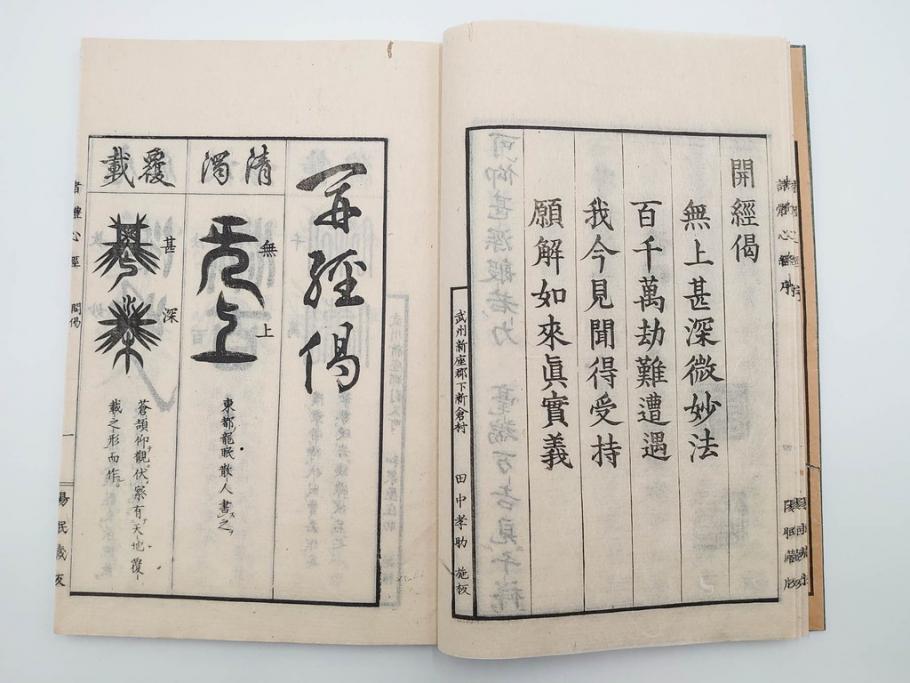 開經偈
無上甚深微妙法
百千萬劫難遭遇
我今見聞得受持
願解如來眞實義
武州新座郡下新倉村 田中孝助 施板
开經偈
清濁
無上
東都龍眠散人書之
覆載
甚深
蒼頡仰觀伏察有天地覆
載之形而作